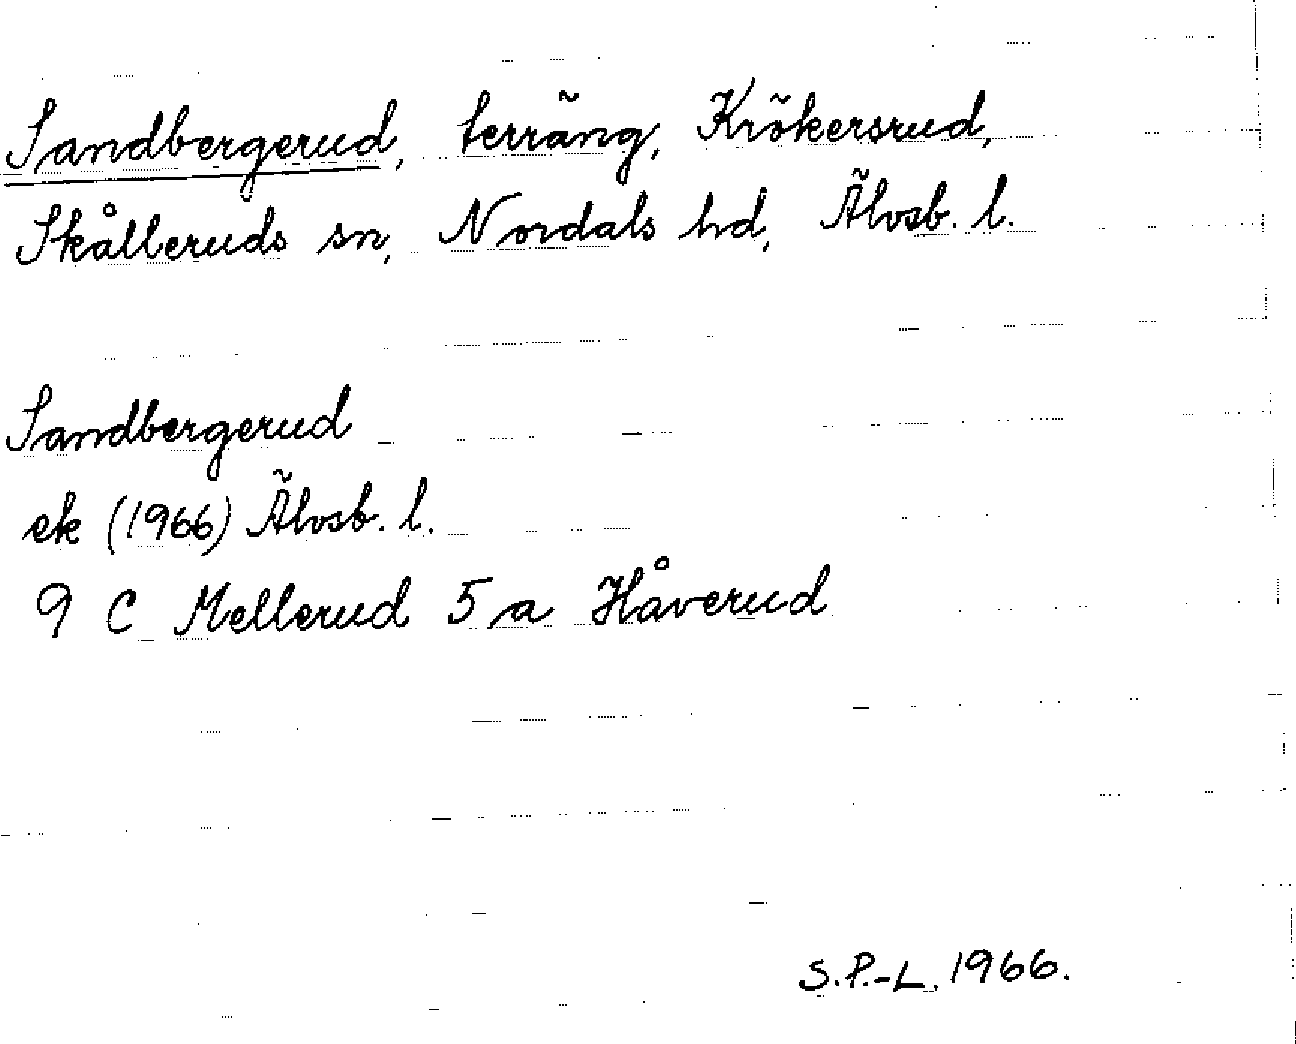 Sandbergerud, terräng, Krökersrud,
Skålleruds sn, Nordals hd, Älvsb. l.
Sandbergerud
ek (1966) Älvsb. l.
9 C Mellerud 5 a Håverud
S.P.-L. 1966.